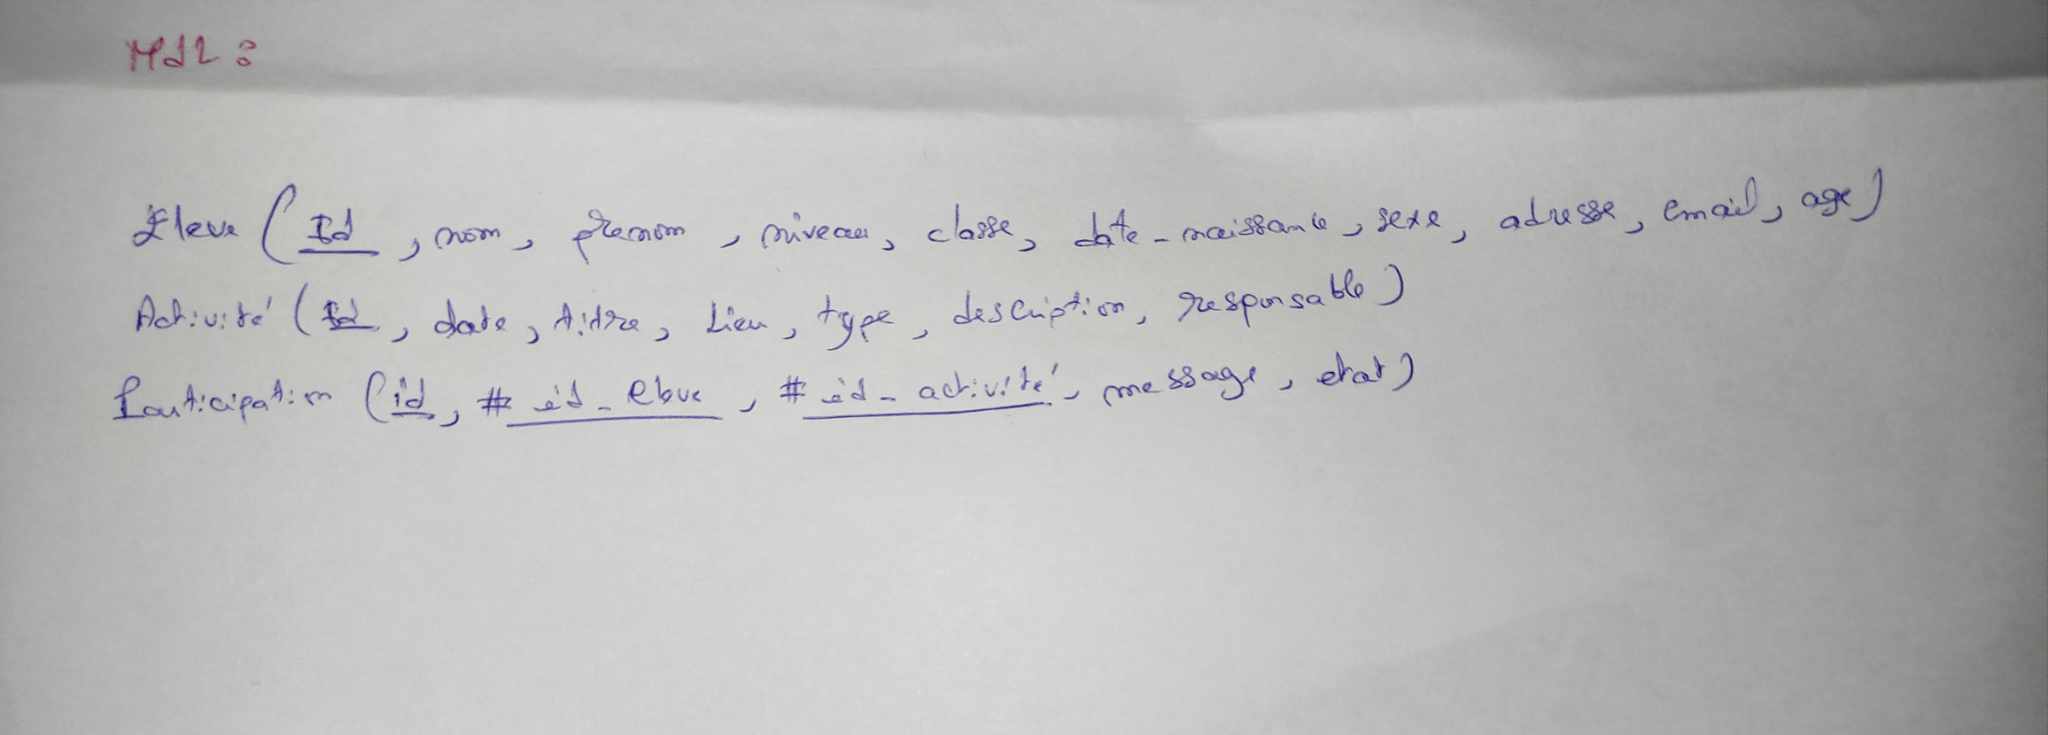 Mdl :
Éleve (Id, nom, prenom, niveau, classe, date-naissance, sexe, adresse, email, age)
Activité (Id, date, titre, lieu, type, description, responsable)
Participation (id, # id-eleve, # id-activité, message, etat)